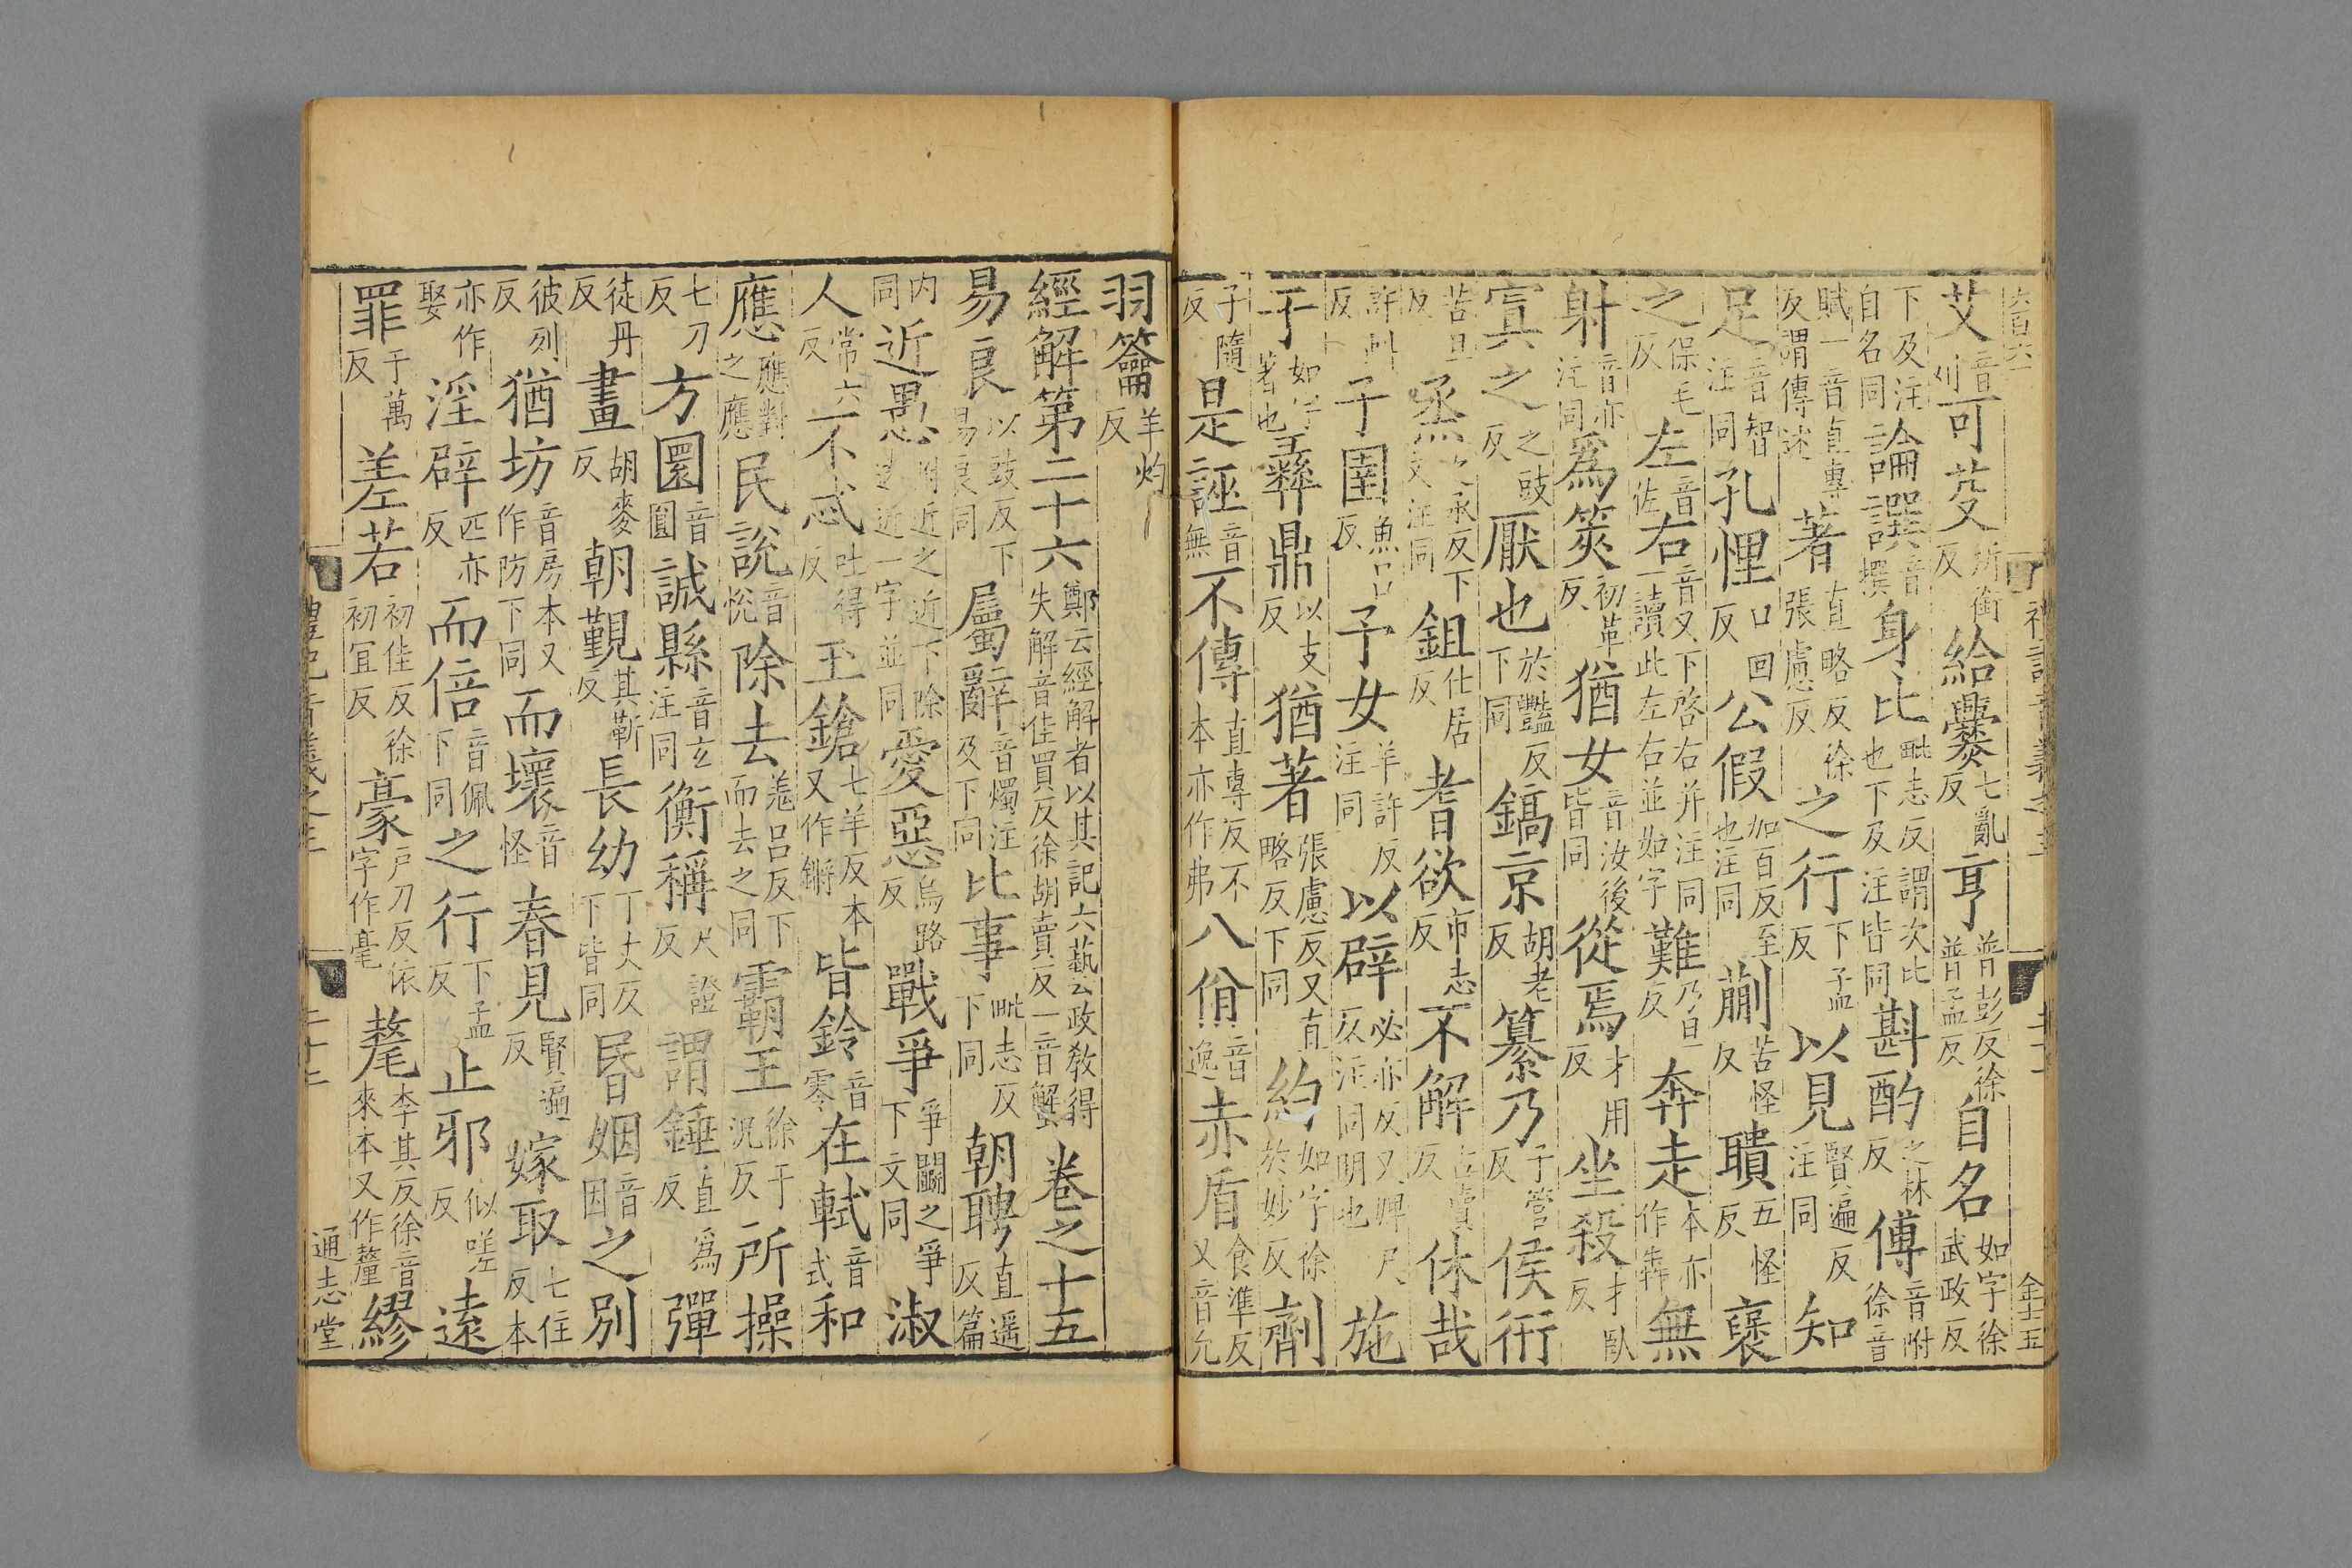 艾音刈可芟所銜反給爨七亂反亨普彭反徐普孟反自名如字徐武政反
下及注自名同論譔音撰身比毗志反謂次比也下及注皆同斟酌之林反傅音附徐音
賦一音直專反謂傳述著直略反徐張慮反之行下孟反以見賢遍反注同知
足音智注同孔悝口回反公假加百反至也注同蒯苦怪反聵五怪反襃
之保毛反左音佐右音又下啓右并注同一讀此左右並如字難乃旦反奔走本亦作犇無
射音亦注同爲筴初革反猶女音汝後皆同從焉才用反坐殺才臥反
寘之之豉反厭也於豔反下同鎬京胡老反纂乃子管反侯衎
苦旦反烝之承反下文注同鉏仕居反耆欲市志反不解古賣反休哉
許虯反子圉魚呂反予女羊許反注同以辟必亦反又婢尺反注同明也施
于如字著也彝鼎以支反猶著張慮反又直略反下同約如字徐於妙反劑
子隨反是誣音無不傳直專反不本亦作弗八佾音逸赤盾食準反又音允
羽籥羊灼反
經解第二十六鄭云經解者以其記六藝云政教得失解音佳買反徐胡賣反一音蟹卷之十五
易良以豉反下易良同屬辭音燭注及下同比事毗志反下同朝聘直遥反篇
内同近愚附近之近下除遠近一字並同愛惡烏路反戰爭爭鬬之爭下文同淑
人常六反不忒吐得反玉鎗七羊反本又作鏘皆鈴音零在軾音式和
應應對之應民說音悅除去羌呂反下而去之同霸王徐于況反所操
七刀反方圜音圓誠縣音玄注同衡稱尺證反謂錘直爲反彈
徒丹反畫胡麥反朝覲其靳反長幼丁丈反下皆同昬姻音因之別
彼列反猶坊音房本又作防下同而壞音怪春見賢遍反嫁取七住反本
亦作娶淫辟匹亦反而倍音佩下同之行下孟反止邪似嗟反遠
罪于萬反差若初佳反徐初宜反豪戶刀反依字作毫氂李其反徐音來本又作釐繆
通志堂